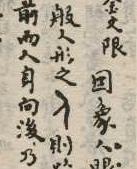 金文限 因象人眼
般人形之入則
前而人自向後乃